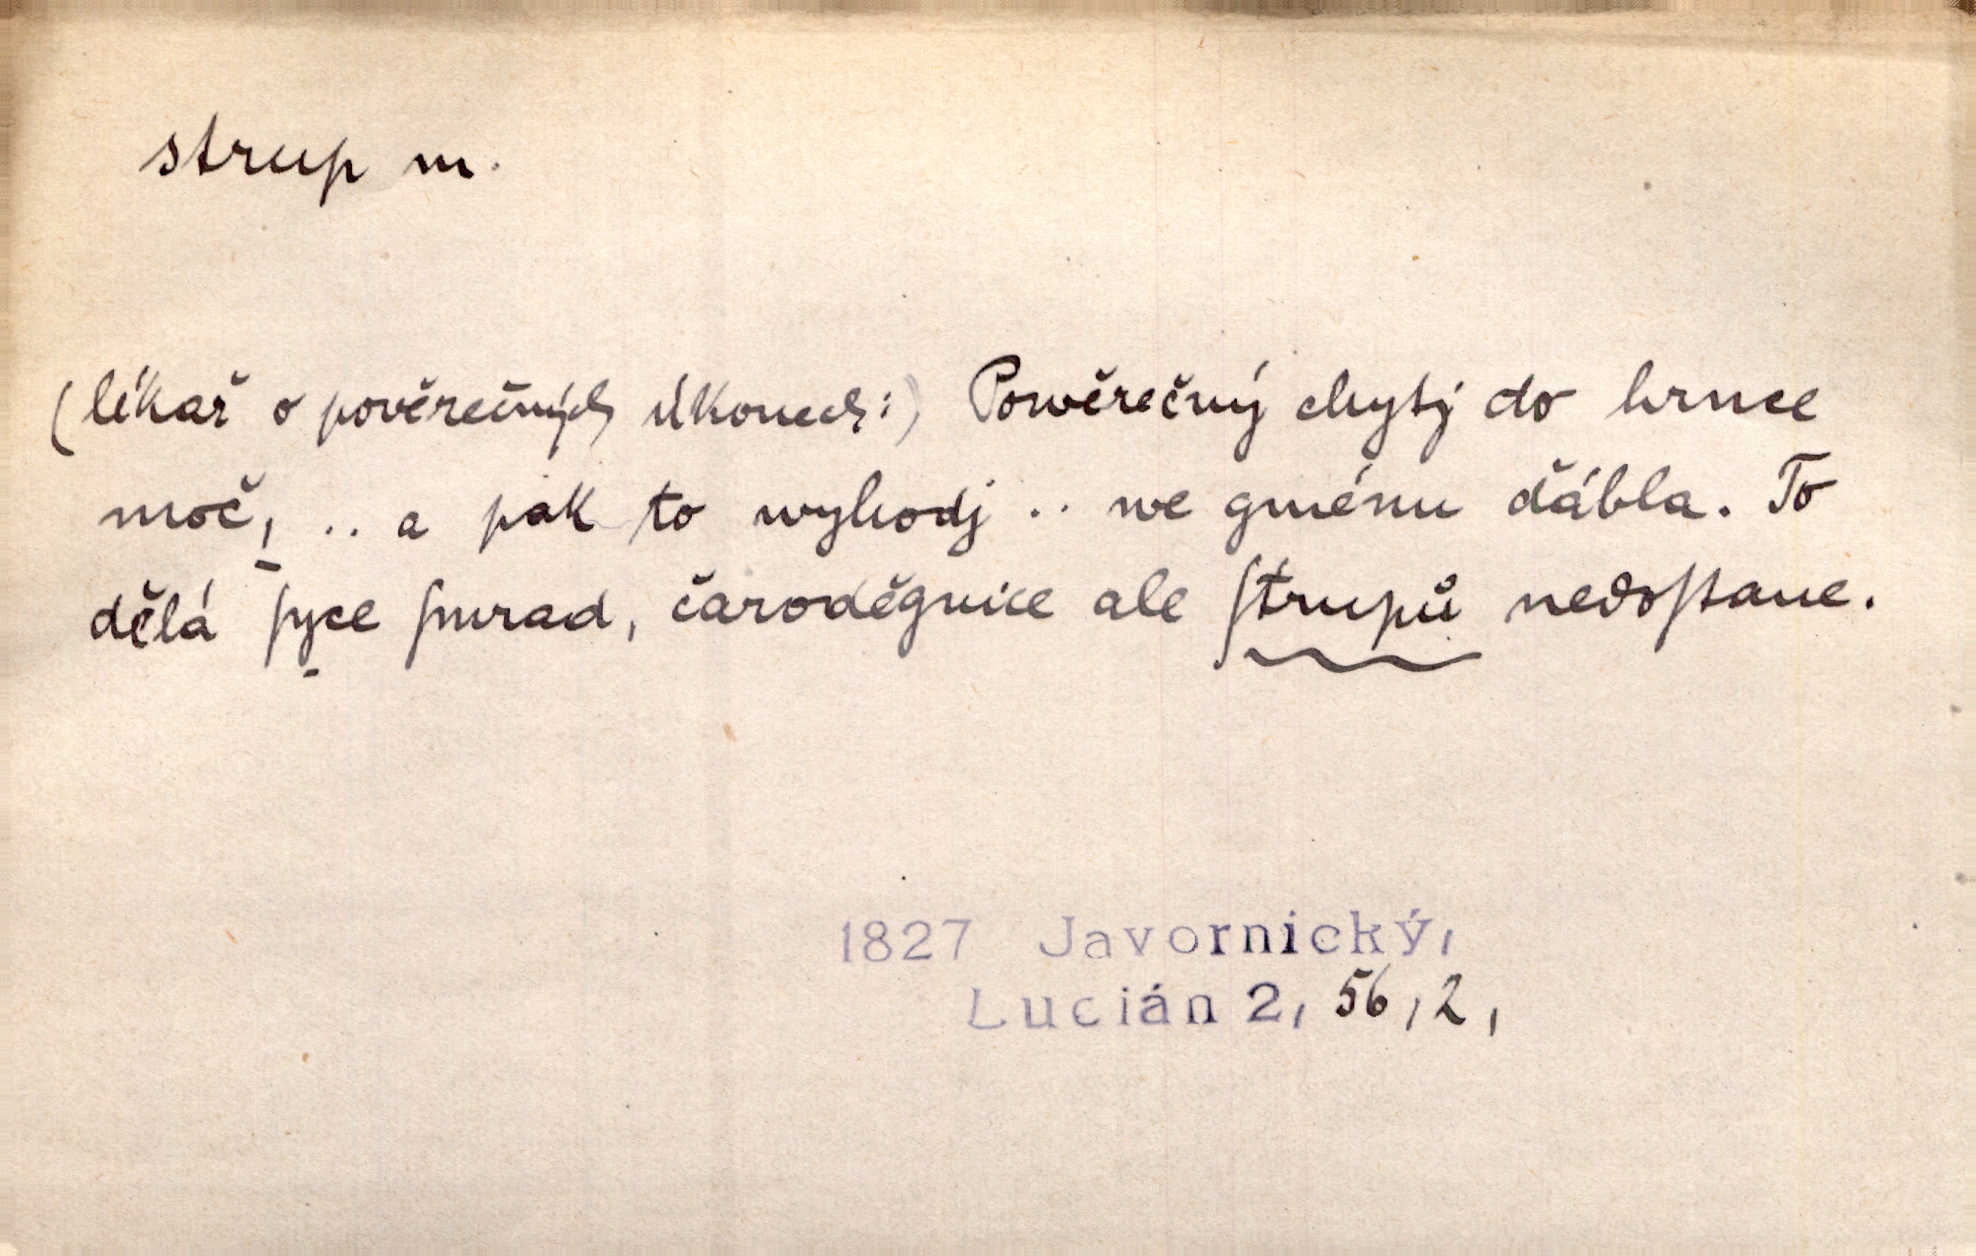 strup m.
(lékař o pověrečných úkonech:) Powěrečný chytj do hrnce
moč, .. a pak to wyhodj .. we gménu ďábla. To
dělá ſyce ſmrad, čaroděgnice ale ſtrupů nedoſtane.
1827 Javornický,
Lucián 2, 56, 2,